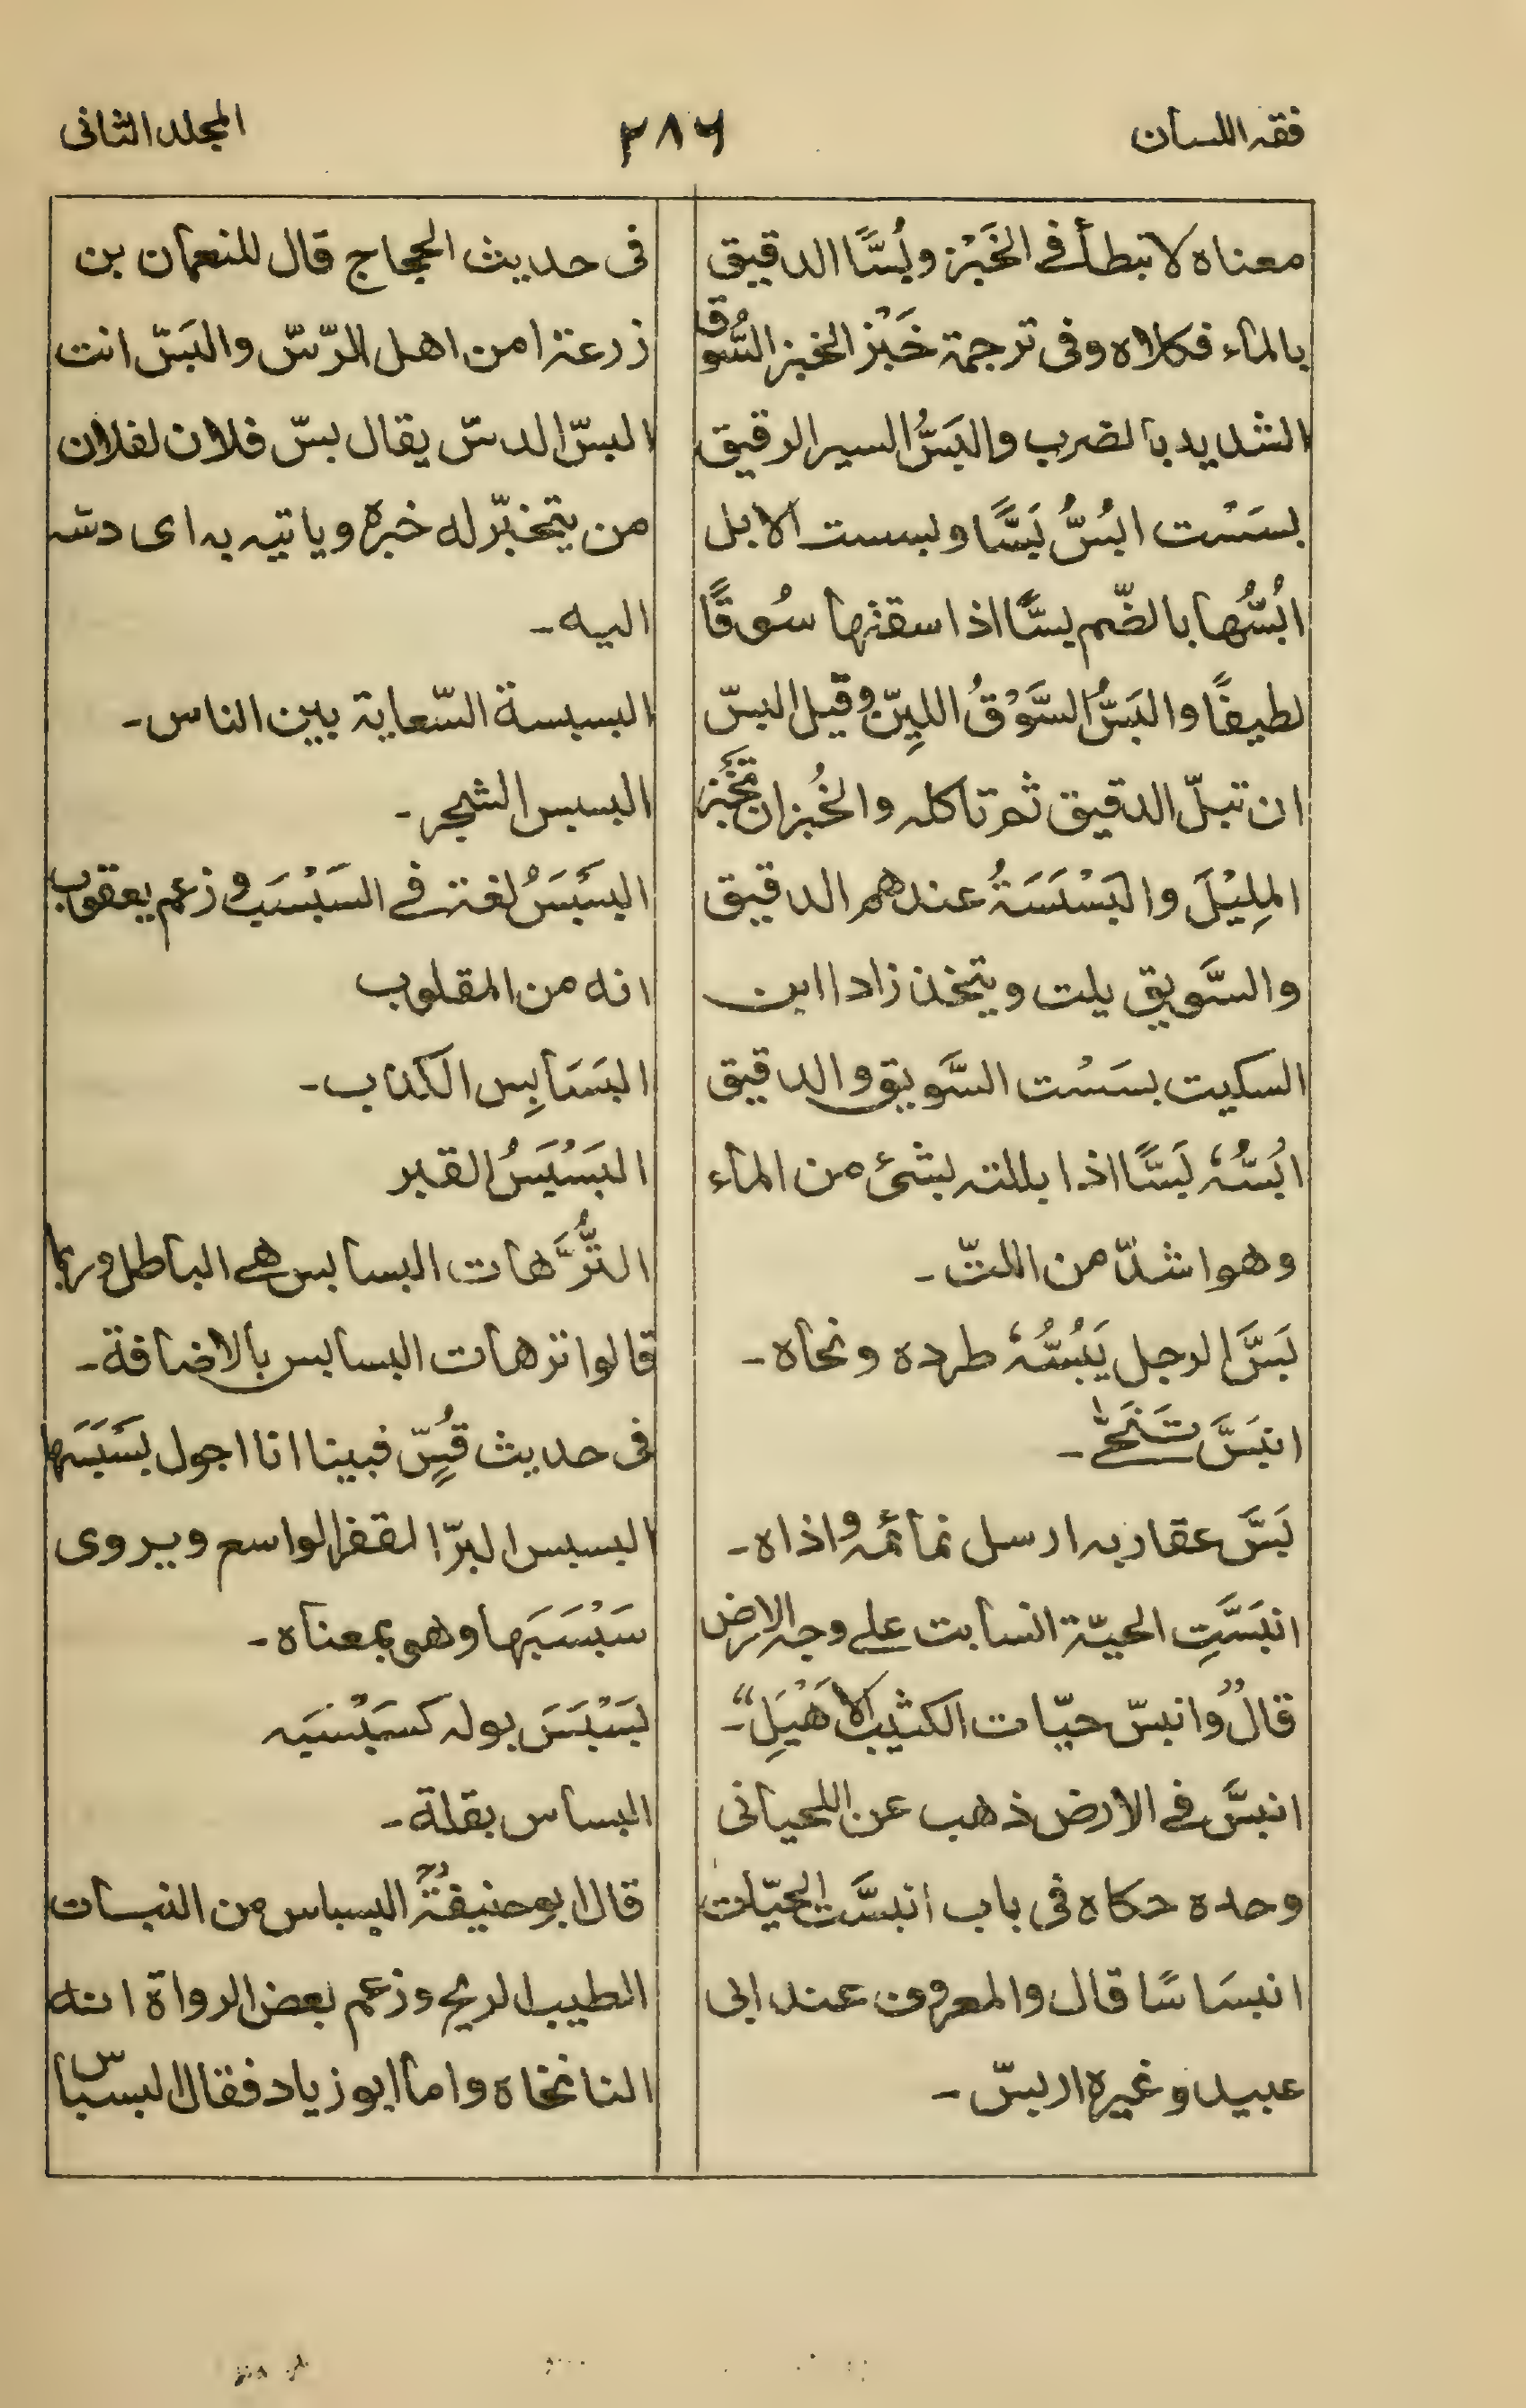 فقه اللسان
٢٨٦
المجلد الثانی
معناه لا تبطأ فے الخَبْز وبُسَّا الدقیق
بالماء فکلاه وفی ترجمة خَبْز الخبز السُّوق
الشدید بالضرب والبَسُّ السیر الرقیق
بسَسْت ابُسُّ بَسًّا وبسست الابل
ابُسُّها بالضّم بسًّا اذا سقتها سُوقًا
لطیفًا والبَسُّ السَّوْقُ اللیِّن وقیل البسّ
ان تبلّ الدقیق ثم تاکله والخُبز ان تَخْبِز
المِلِیْلَ والبَسْسَسَةُ عندهم الدقیق
والسَّویق یلت ویتخذ زادا ابن
السکیت بسَسْت السَّویق والدقیق
ابُسُّهٗ بَسًّا اذا بللته بشئ من الماء
وهو اشدّ من اللتّ ـ
بَسَّ الرجل یَبُسُّهٗ طرده ونحاه ـ
انبَسَّ تَنَحّٰے ـ
بَسَّ عقاربه ارسل نمائمه واذاه ـ
انبَسَّتِ الحیّة انسابت علے وجه الارض
قال "وانبسّ حیّات الکثیب الاَهْیَلِ" ـ
انبسَّ فے الارض ذهب عن اللحیانی
وحده حکاه فی باب انبسَّت الحیّات
انبسَاسًا قال والمعروف عند ابی
عبید وغیره اربسّ ـ
فی حدیث الحجاج قال للنعمان بن
زرعة امن اهل الرّسّ والبَسّ انت
البسّ الدسّ یقال بسّ فلان لفلان
من یتخبّر له خبره ویاتیه به ای دسّه
الیه ـ
البسبسة السّعایة بین الناس ـ
البسبس الشجر ـ
البَسْبَسُ لغة فے السَبْسَب وزعم یعقوب
انه من المقلوب
البَسَابِس الکذب ـ
البَسْبَسُ القفر
التُّرَّهات البسابس هے الباطل وربما
قالوا ترهات البسابس بالاضافة ـ
فی حدیث قُسٍّ فبینا انا اجول بَسْبَسَها
البسبس البرّ القفر الواسع ویروی
سَبْسَبَها وهی بمعناه ـ
بَسْبَسَ بوله کسَبْسَبَه
البساس بقلة ـ
قال ابو حنیفةؒ البسباس من النبات
الطیب الریح وزعم بعض الرواة انه
النانخاه واما ابو زیاد فقال البسباس